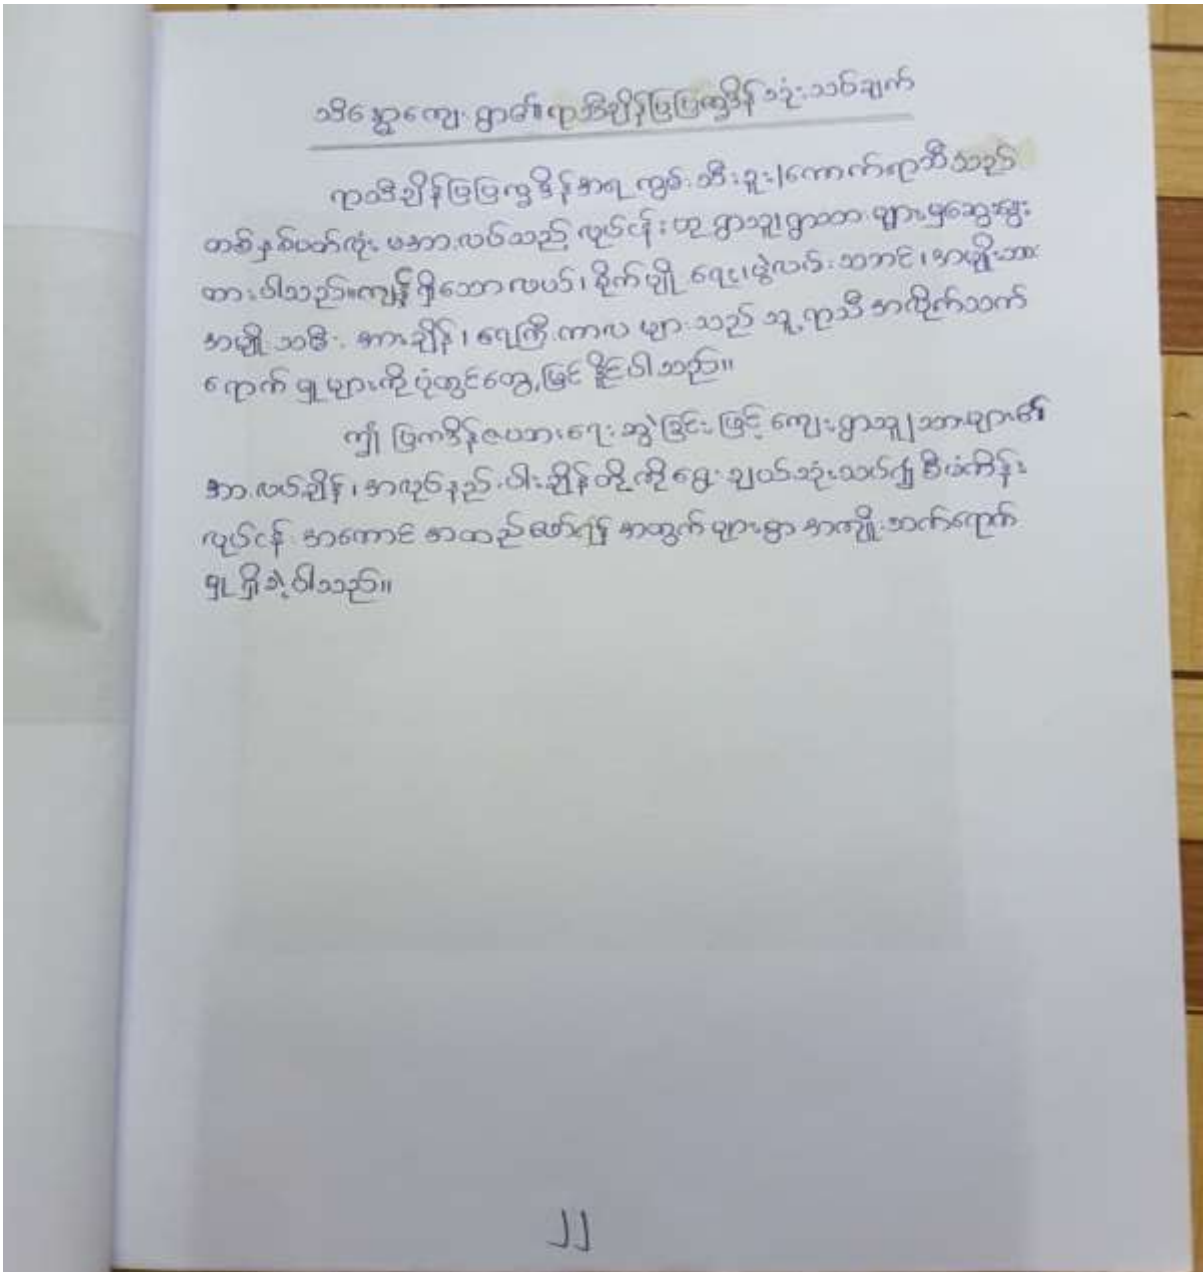 သိန္ဓောကျေးရွာ၏ ရာသီချိန်ပြပြက္ခဒိန် သုံးသပ်ချက်
ရာသီချိန်ပြပြက္ခဒိန်အရ ကွမ်းသီးခူး/ကောက်ရာသီသည်
တစ်နှစ်ပတ်လုံး မအားလပ်သည့် လုပ်ငန်းဟု ရွာသူ၊ ရွာသား များမှဆွေးနွေး
ထားပါသည်။ကျန်ရှိသောလယ်၊ စိုက်ပျိုးရေး၊ပွဲလမ်းသဘင်၊အမျိုးသား
အမျိုးသမီး အားချိန်၊ ရေကြီးကာလ များသည် သူ့ရာသီအလိုက်သက်
ရောက်မှုများကို ပုံတွင်တွေ့မြင်နိုင်ပါသည်။
ဤပြက္ခဒိန်ဇယားရေးဆွဲခြင်းဖြင့် ကျေးရွာသူ/သားများ၏
အားလပ်ချိန်၊ အလုပ်နည်းပါးချိန်တို့ကိုရွေးချယ်သုံးသပ်၍ စီမံကိန်း
လုပ်ငန်း အကောင်အထည်ဖော်ရန် အတွက်များစွာ အကျိုးသက်ရောက်
မှုရှိခဲ့ပါသည်။
၂၂